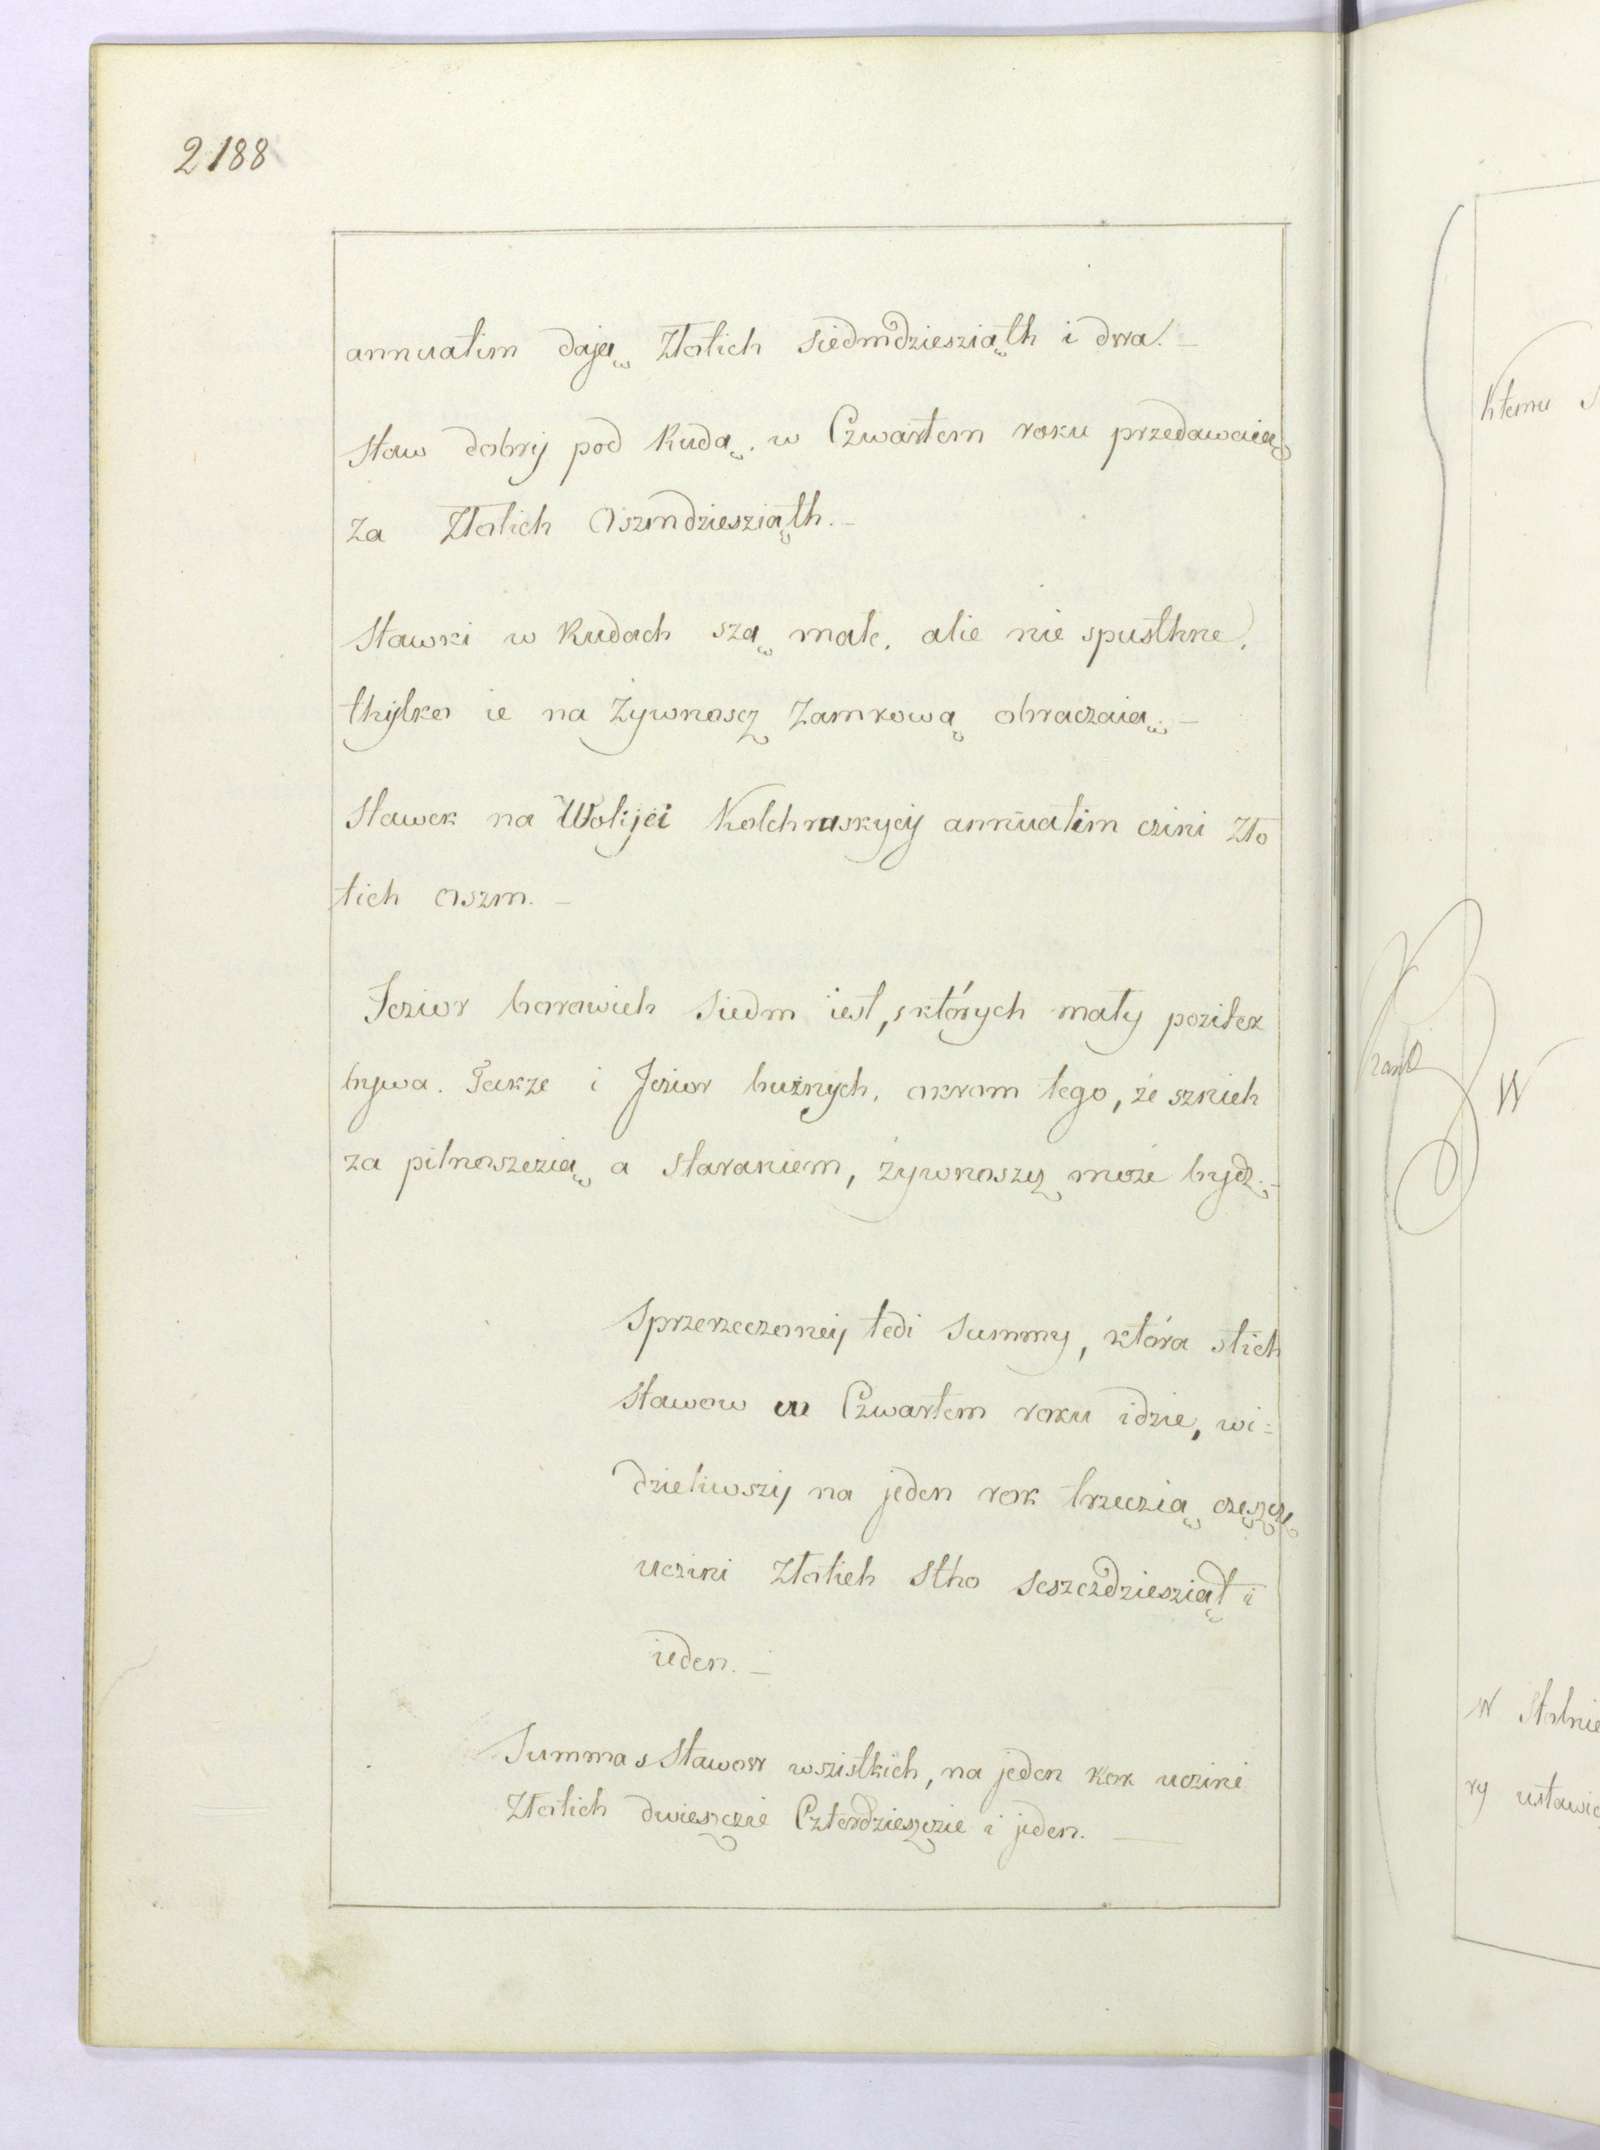 2188
annuatim dają Złotich siedmdziesziąth i dwa. –
Staw dobry pod Rudą. w Czwartem roku przedawaią
za Złotich Oszmdziesziąth. –
Stawki w Rudach szą małe, alie nie spusthne,
thylko ie na Żywnoscz Zamkową obraczaią. –
Stawek na Wolijei annuatim czini Zło
tich oszm. –
Jezior borowich Siedm iest, s których mały pozitek
bywa. Także i Jezior bużnych, okrom tego, że sznich
za pilnoszczią a staraniem, żywnoszcz może bydź. –
Sprzerzeczonej tedi Summy, która stich
stawow w Czwartem roku idzie, wi=
dzieliwszy na jeden rok trzeczią częszcz
uczini Złotich stho seszczdziesziąt i
ieden. –
Summa s Stawow wszistkich, na jeden Rok uczini
Złotich dwieszczie Czterdzieszczie i jeden. —
ktemu
W
W